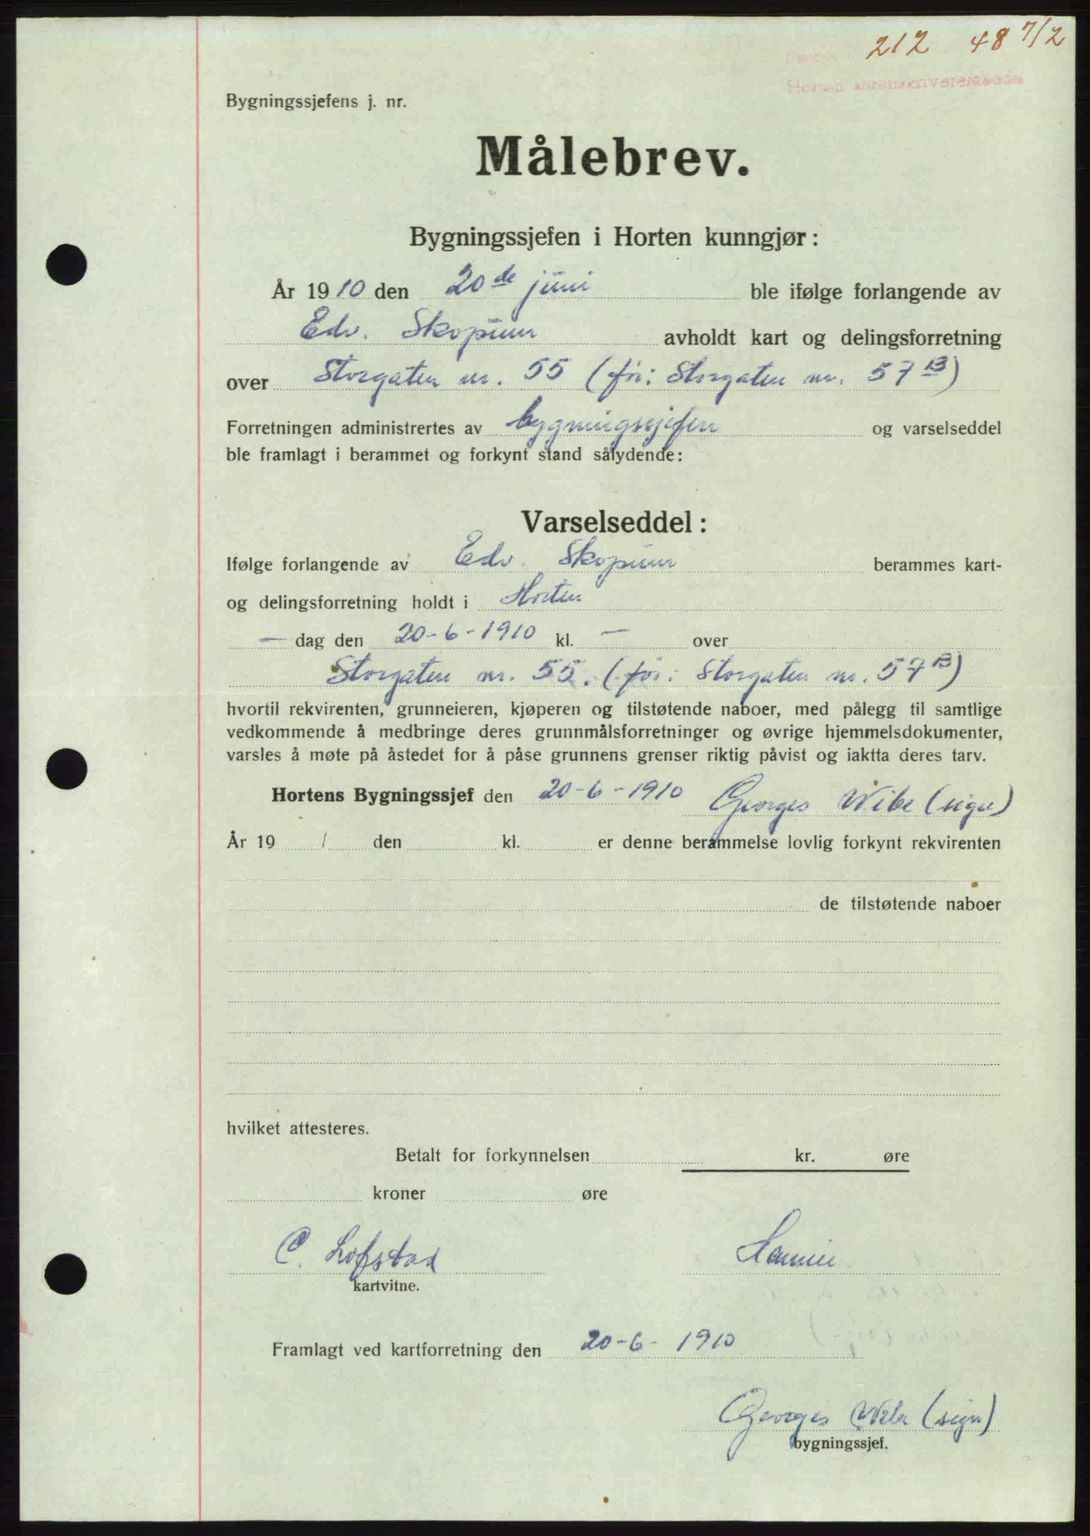 212 48 7/2
Horten sorenskriverembede
Bygningssjefens j. nr.
Målebrev.
Bygningssjefen i Horten kunngjør:
År 1910 den 20de juni ble ifølge forlangende av
Edv. Skopum avholdt kart og delingsforretning
over Storgaten nr. 55 (før: Storgaten nr. 57 B)
Forretningen administrertes av bygningssjefen og varselseddel
ble framlagt i berammet og forkynt stand sålydende:
Varselseddel:
Ifølge forlangende av Edv. Skopum berammes kart-
og delingsforretning holdt i Horten
— dag den 20-6-1910 kl. — over
Storgaten nr. 55. (før: Storgaten nr. 57 B)
hvortil rekvirenten, grunneieren, kjøperen og tilstøtende naboer, med pålegg til samtlige
vedkommende å medbringe deres grunnmålsforretninger og øvrige hjemmelsdokumenter,
varsles å møte på åstedet for å påse grunnens grenser riktig påvist og iaktta deres tarv.
Hortens Bygningssjef den 20-6-1910 Georges Wibe (sign)
År 19 / den kl. er denne berammelse lovlig forkynt rekvirenten
de tilstøtende naboer
hvilket attesteres.
Betalt for forkynnelsen kr. øre
kroner øre
C. Lofstad
kartvitne.
Framlagt ved kartforretning den 20-6-1910
Georges Wibe (sign)
bygningssjef.